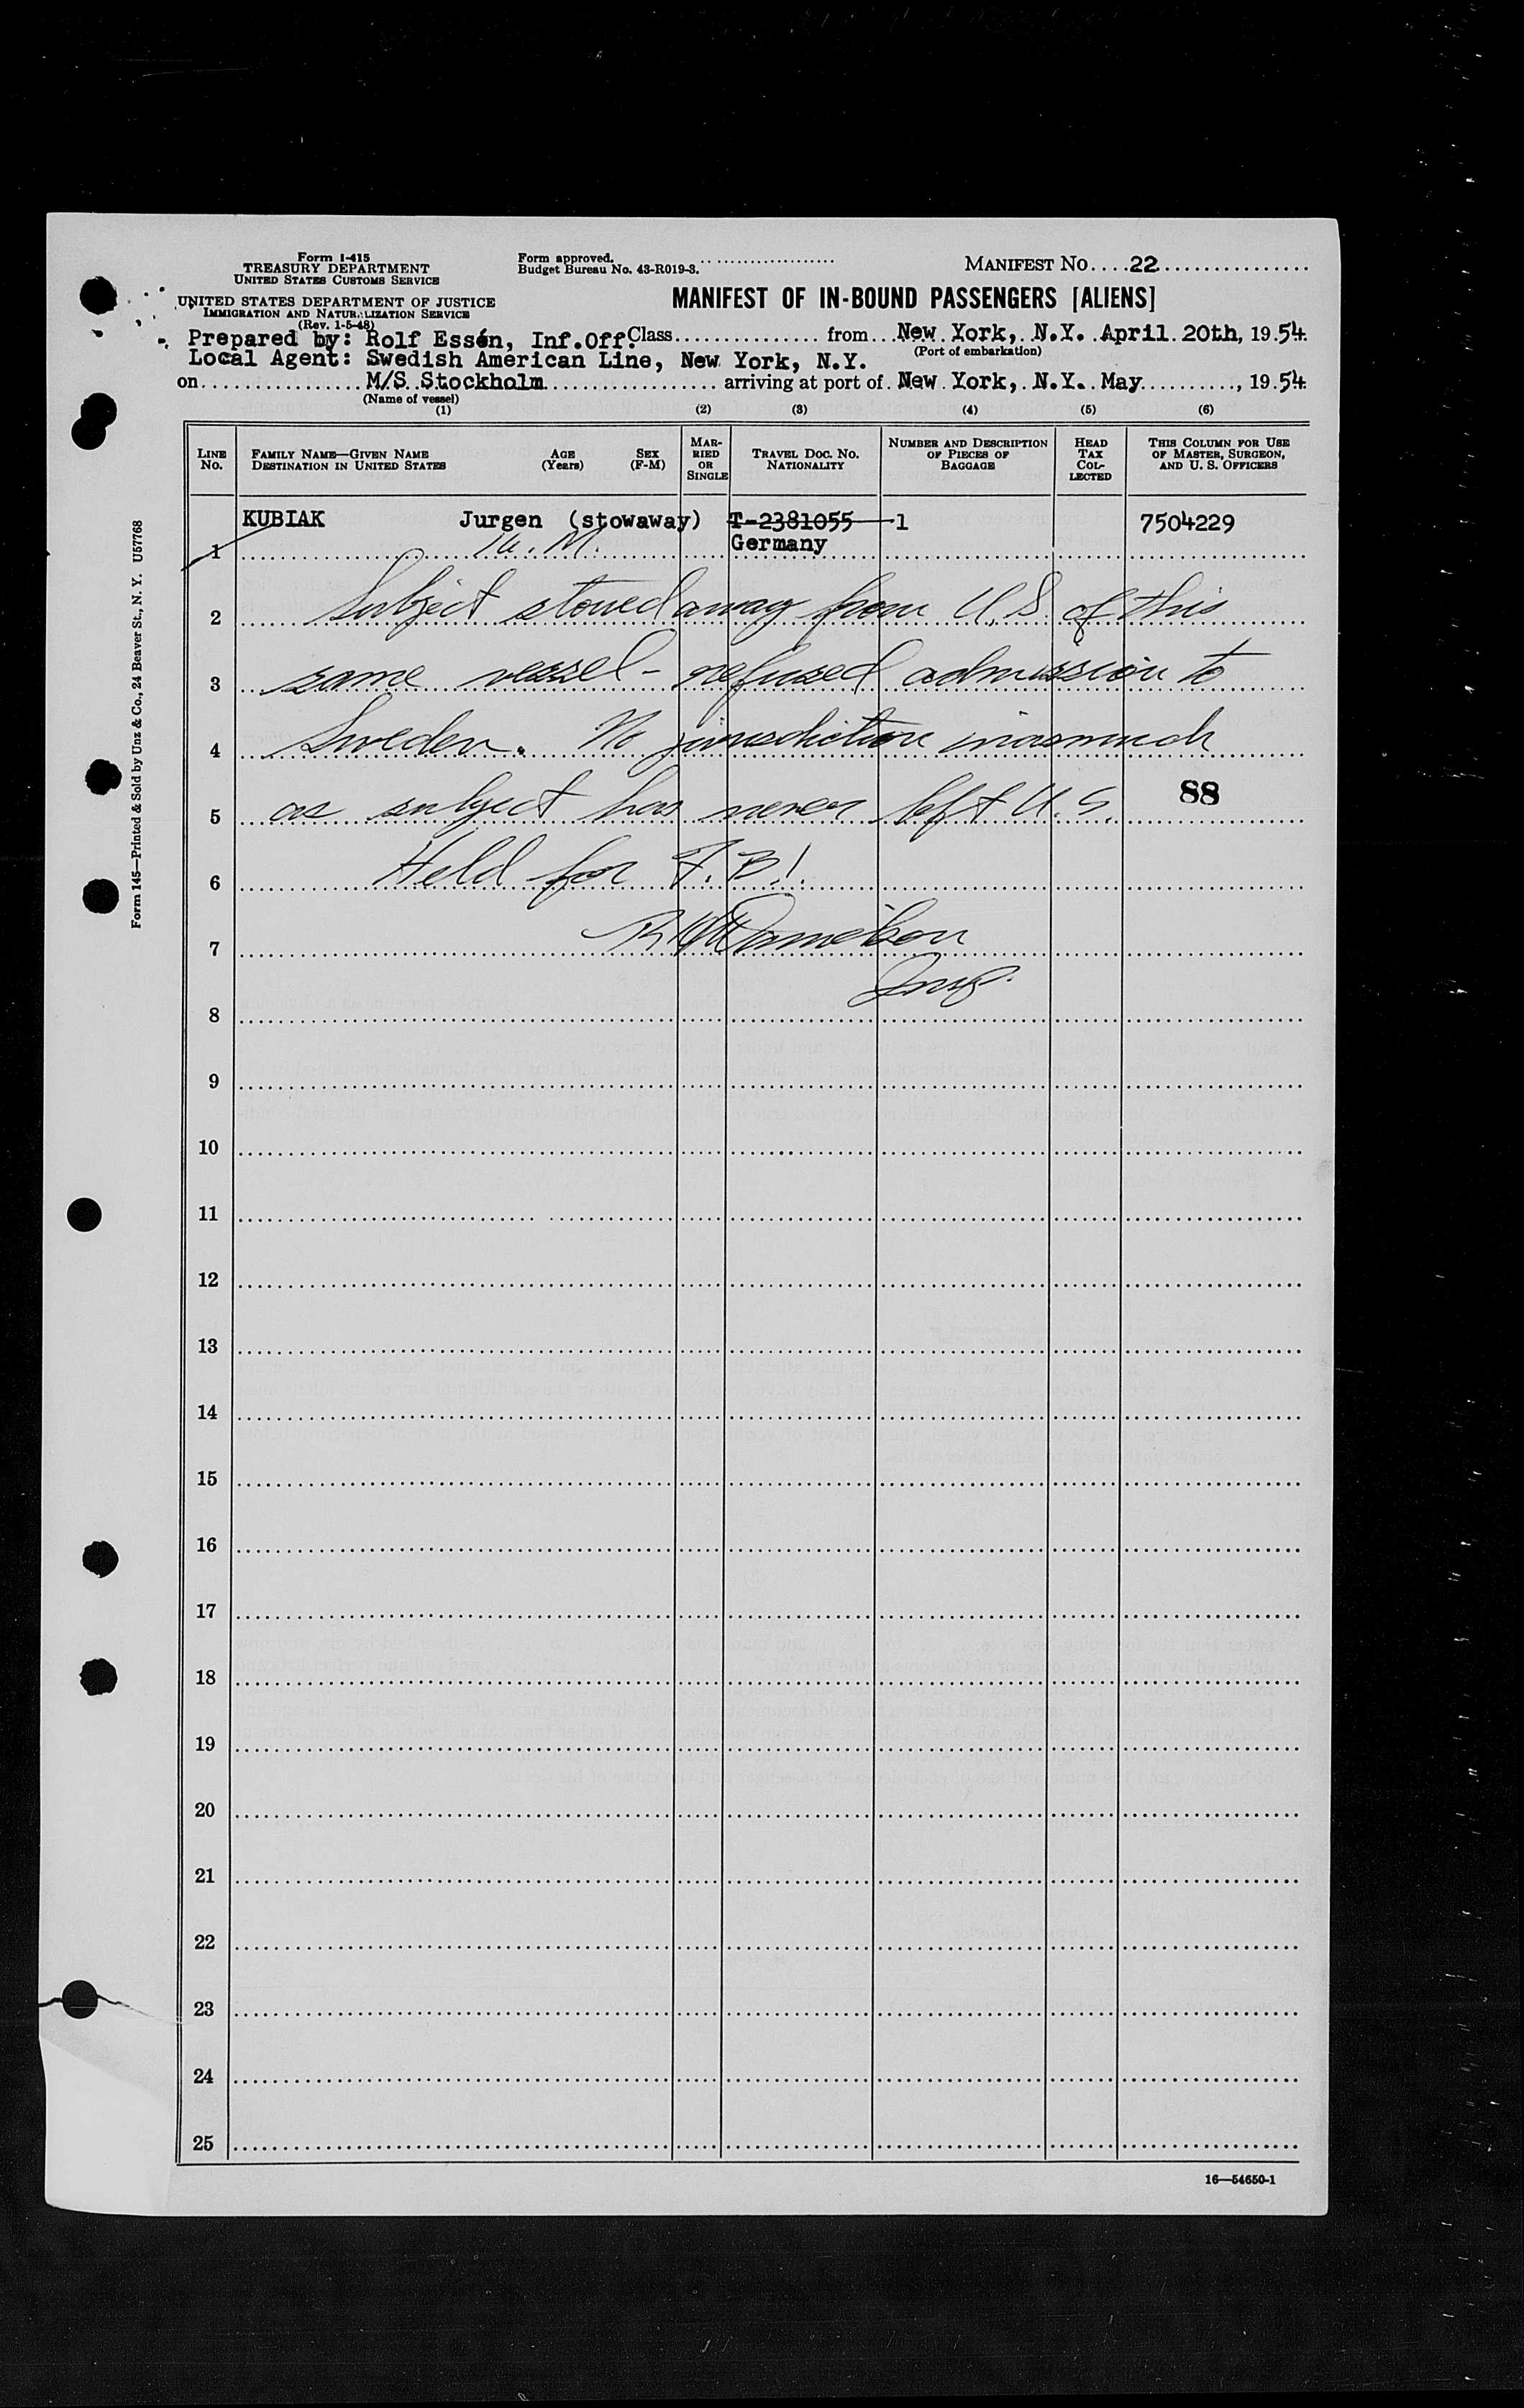 Form I-415
TREASURY DEPARTMENT
UNITED STATES CUSTOMS SERVICE
UNITED STATES DEPARTMENT OF JUSTICE
IMMIGRATION AND NATURALIZATION SERVICE
(Rev. 1-5-48)
Form approved.
Budget Bureau No. 43-R019-3.
MANIFEST NO....22
MANIFEST OF IN-BOUND PASSENGERS [ALIENS]
Prepared by: Rolf Essén, Inf.Off. Class from New York, N.Y. April 20th, 1954
Local Agent: Swedish American Line, New York, N.Y. (Port of embarkation)
on M/S Stockholm arriving at port of New York, N.Y. May, 1954
(Name of vessel)
(1) (2) (3) (4) (5) (6)
LINE NO. FAMILY NAME—GIVEN NAME DESTINATION IN UNITED STATES AGE (Years) SEX (F-M) MARRIED OR SINGLE TRAVEL DOC. NO. NATIONALITY NUMBER AND DESCRIPTION OF PIECES OF BAGGAGE HEAD TAX COLLECTED THIS COLUMN FOR USE OF MASTER, SURGEON, AND U. S. OFFICERS
KUBIAK Jurgen (stowaway) T-2381055 1 7504229
1 M. Germany
2 Subject stowed away from U.S. of this
3 same vessel - refused admission to
4 Sweden. No jurisdiction inasmuch
5 as subject has never left U.S. 88
6 Held for F.B.I.
7
8 Insp.
9
10
11
12
13
14
15
16
17
18
19
20
21
22
23
24
25
16—54650-1
Form 145—Printed & Sold by Unz & Co., 24 Beaver St., N. Y. U57768